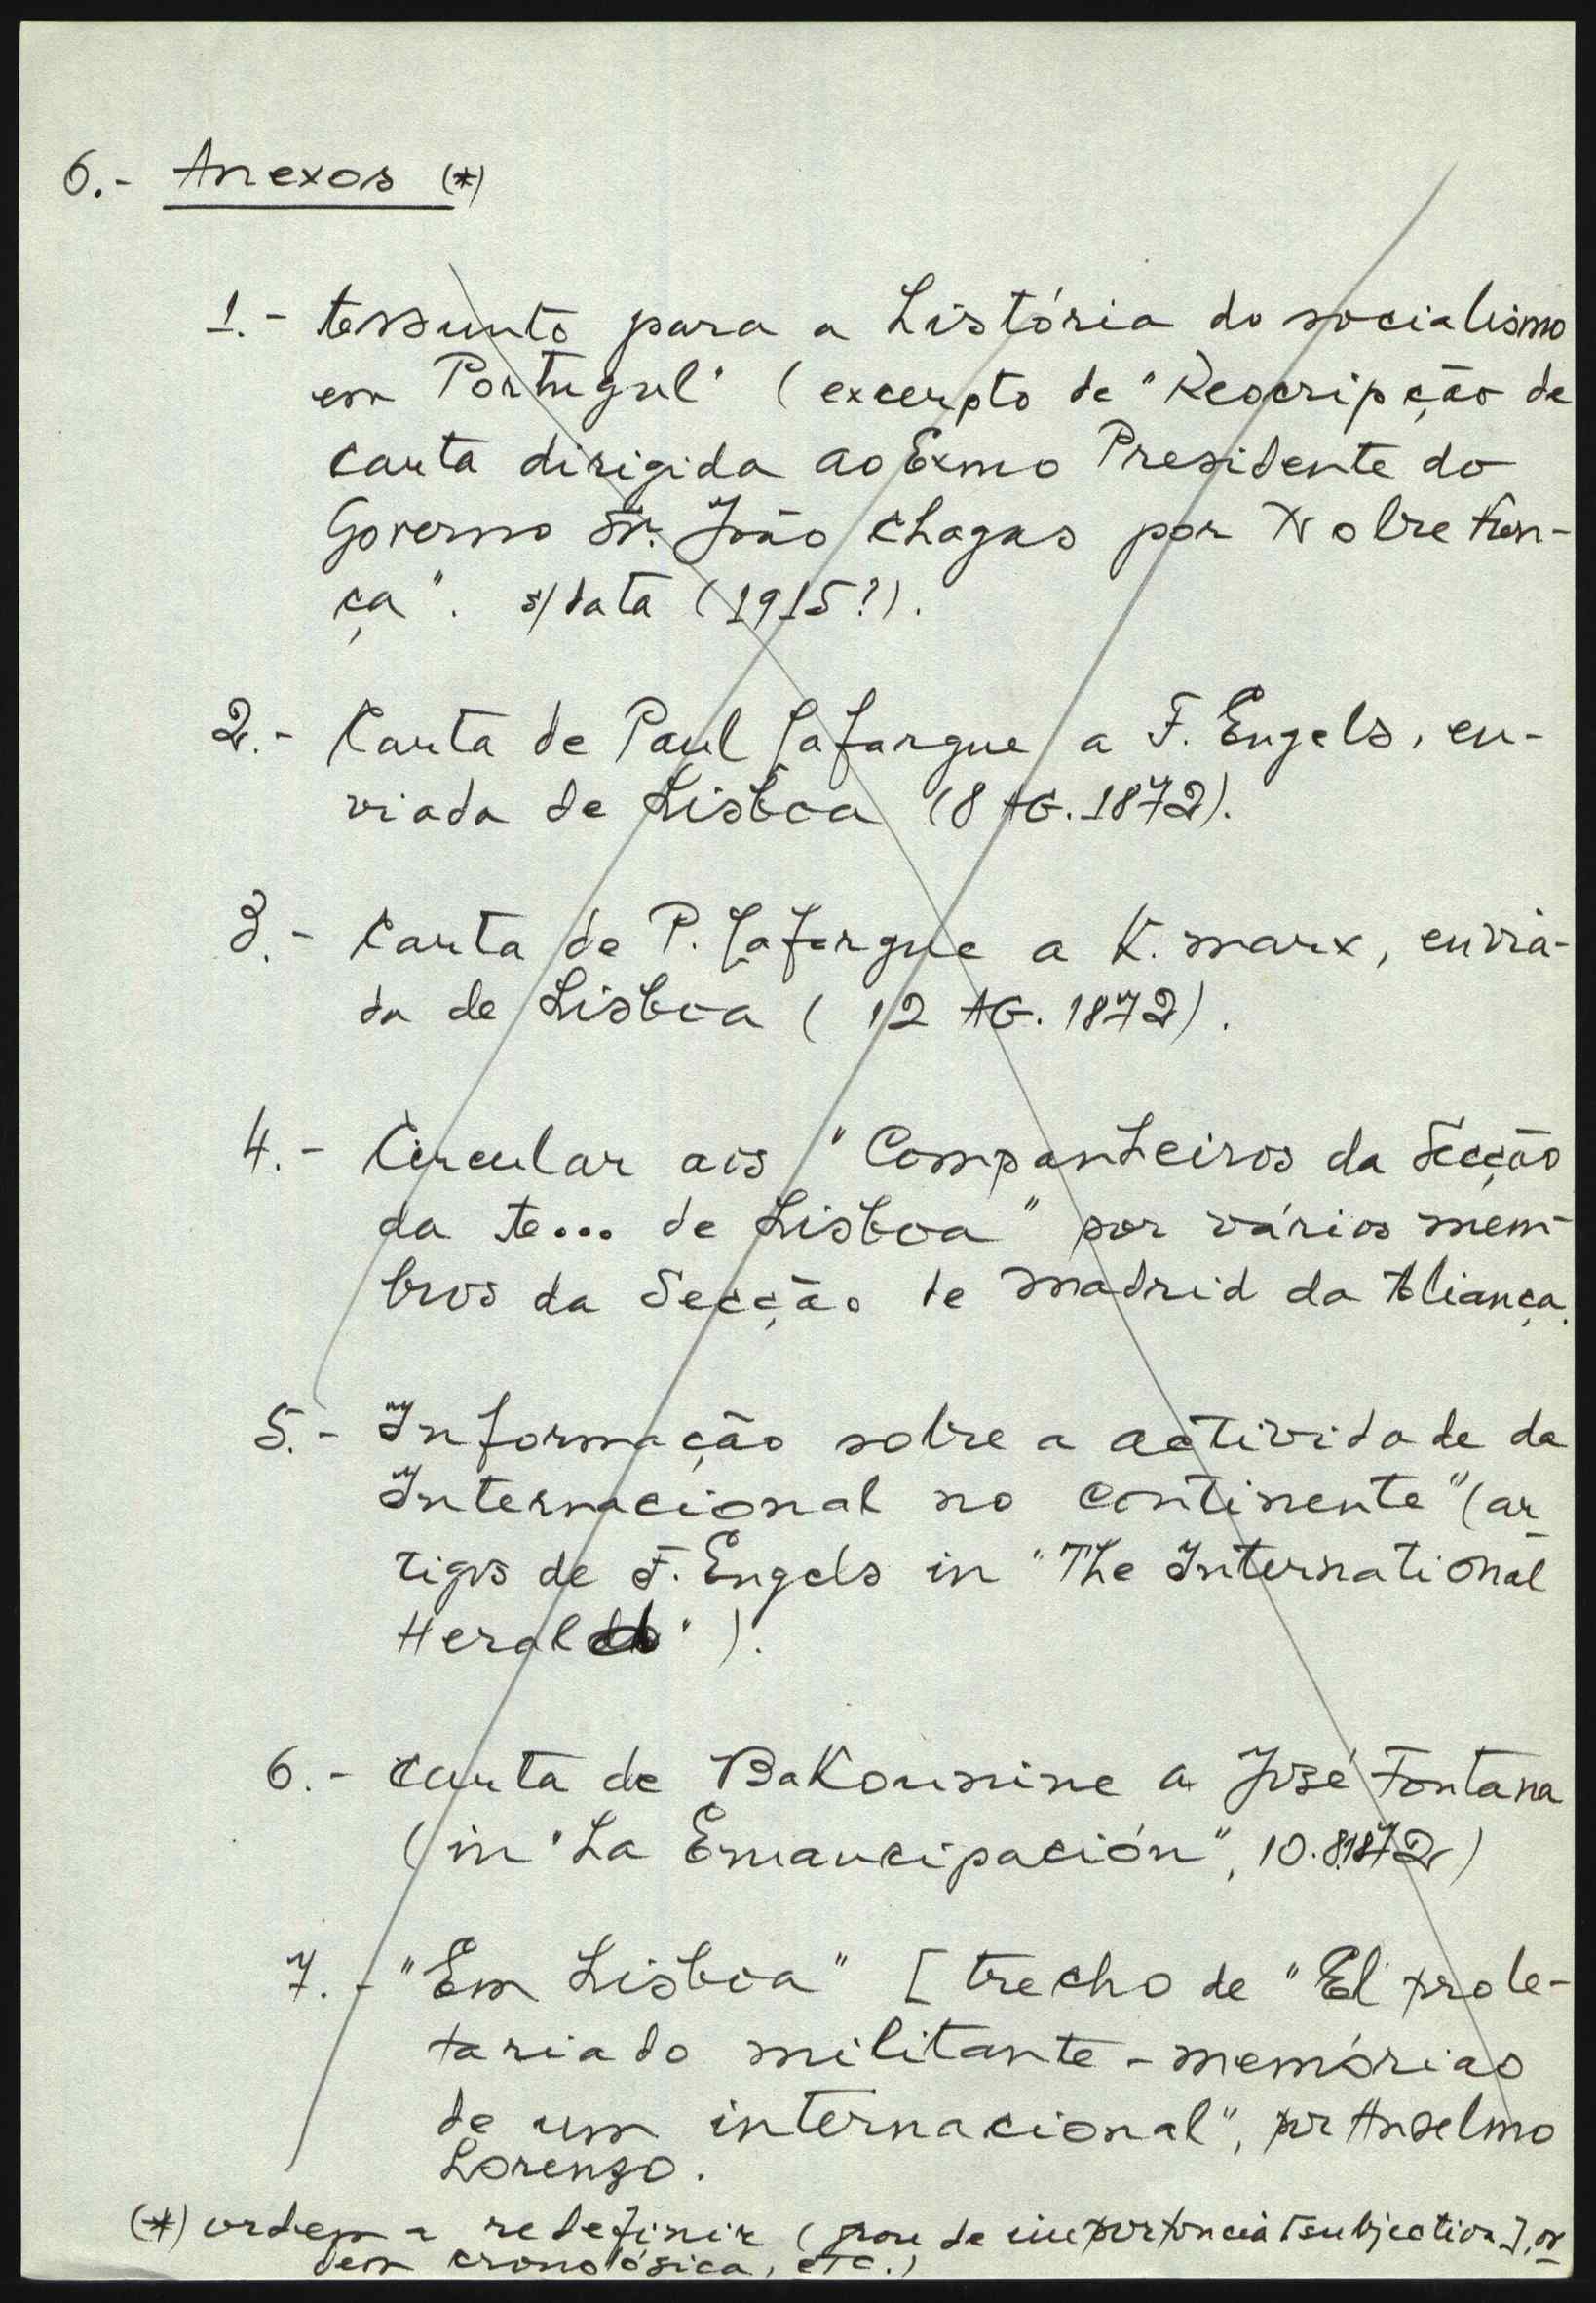 6.- Anexos (*)
1.- Assunto para a história do socialismo
em Portugal" (excerpto de "Descripção de
carta dirigida ao Exmo Presidente do
Governo Sr. João Chagas por Nobre Fran-
ça". s/data (1915?).
2.- Carta de Paul Lafargue a F. Engels, en-
viada de Lisboa (8 AG. 1872).
3.- Carta de P. Lafargue a K. Marx, envia-
da de Lisboa (12 AG. 1872).
4.- Circular aos "Companheiros da Secção
da A... de Lisboa" por vários mem-
bros da Secção de Madrid da Aliança.
5.- Informação sobre a actividade da
Internacional no continente" (ar-
tigos de F. Engels in "The International
Herald").
6.- Carta de Bakounine a José Fontana
(in "La Emancipación", 10.8.1872)
7.- "Em Lisboa" [trecho de "El prole-
tariado militante - memórias
de um internacional", por Anselmo
Lorenzo.
(*) ordem a redefinir (grau de importância [subjectiva], or-
dem cronológica, etc.)